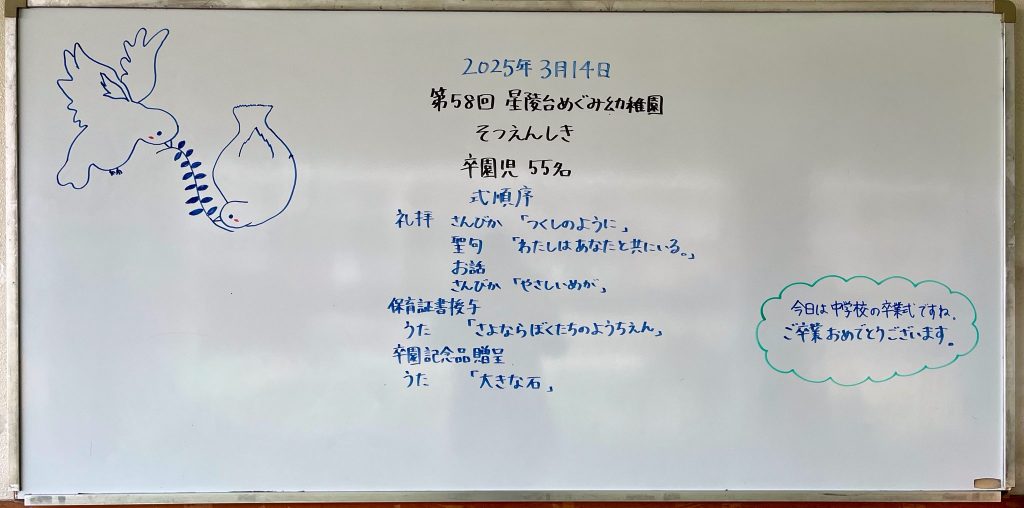 2025年 3月14日
第58回 星陵台めぐみ幼稚園
そつえんしき
卒園児 55名
式順序
礼拝 さんびか 「つくしのように」
聖句 「わたしはあなたと共にいる。」
お話
さんびか 「やさしいめが」
保育証書授与
うた 「さよならぼくたちのようちえん」
卒園記念品贈呈
うた 「大きな石」
今日は中学校の卒業式ですね。
ご卒業おめでとうございます。